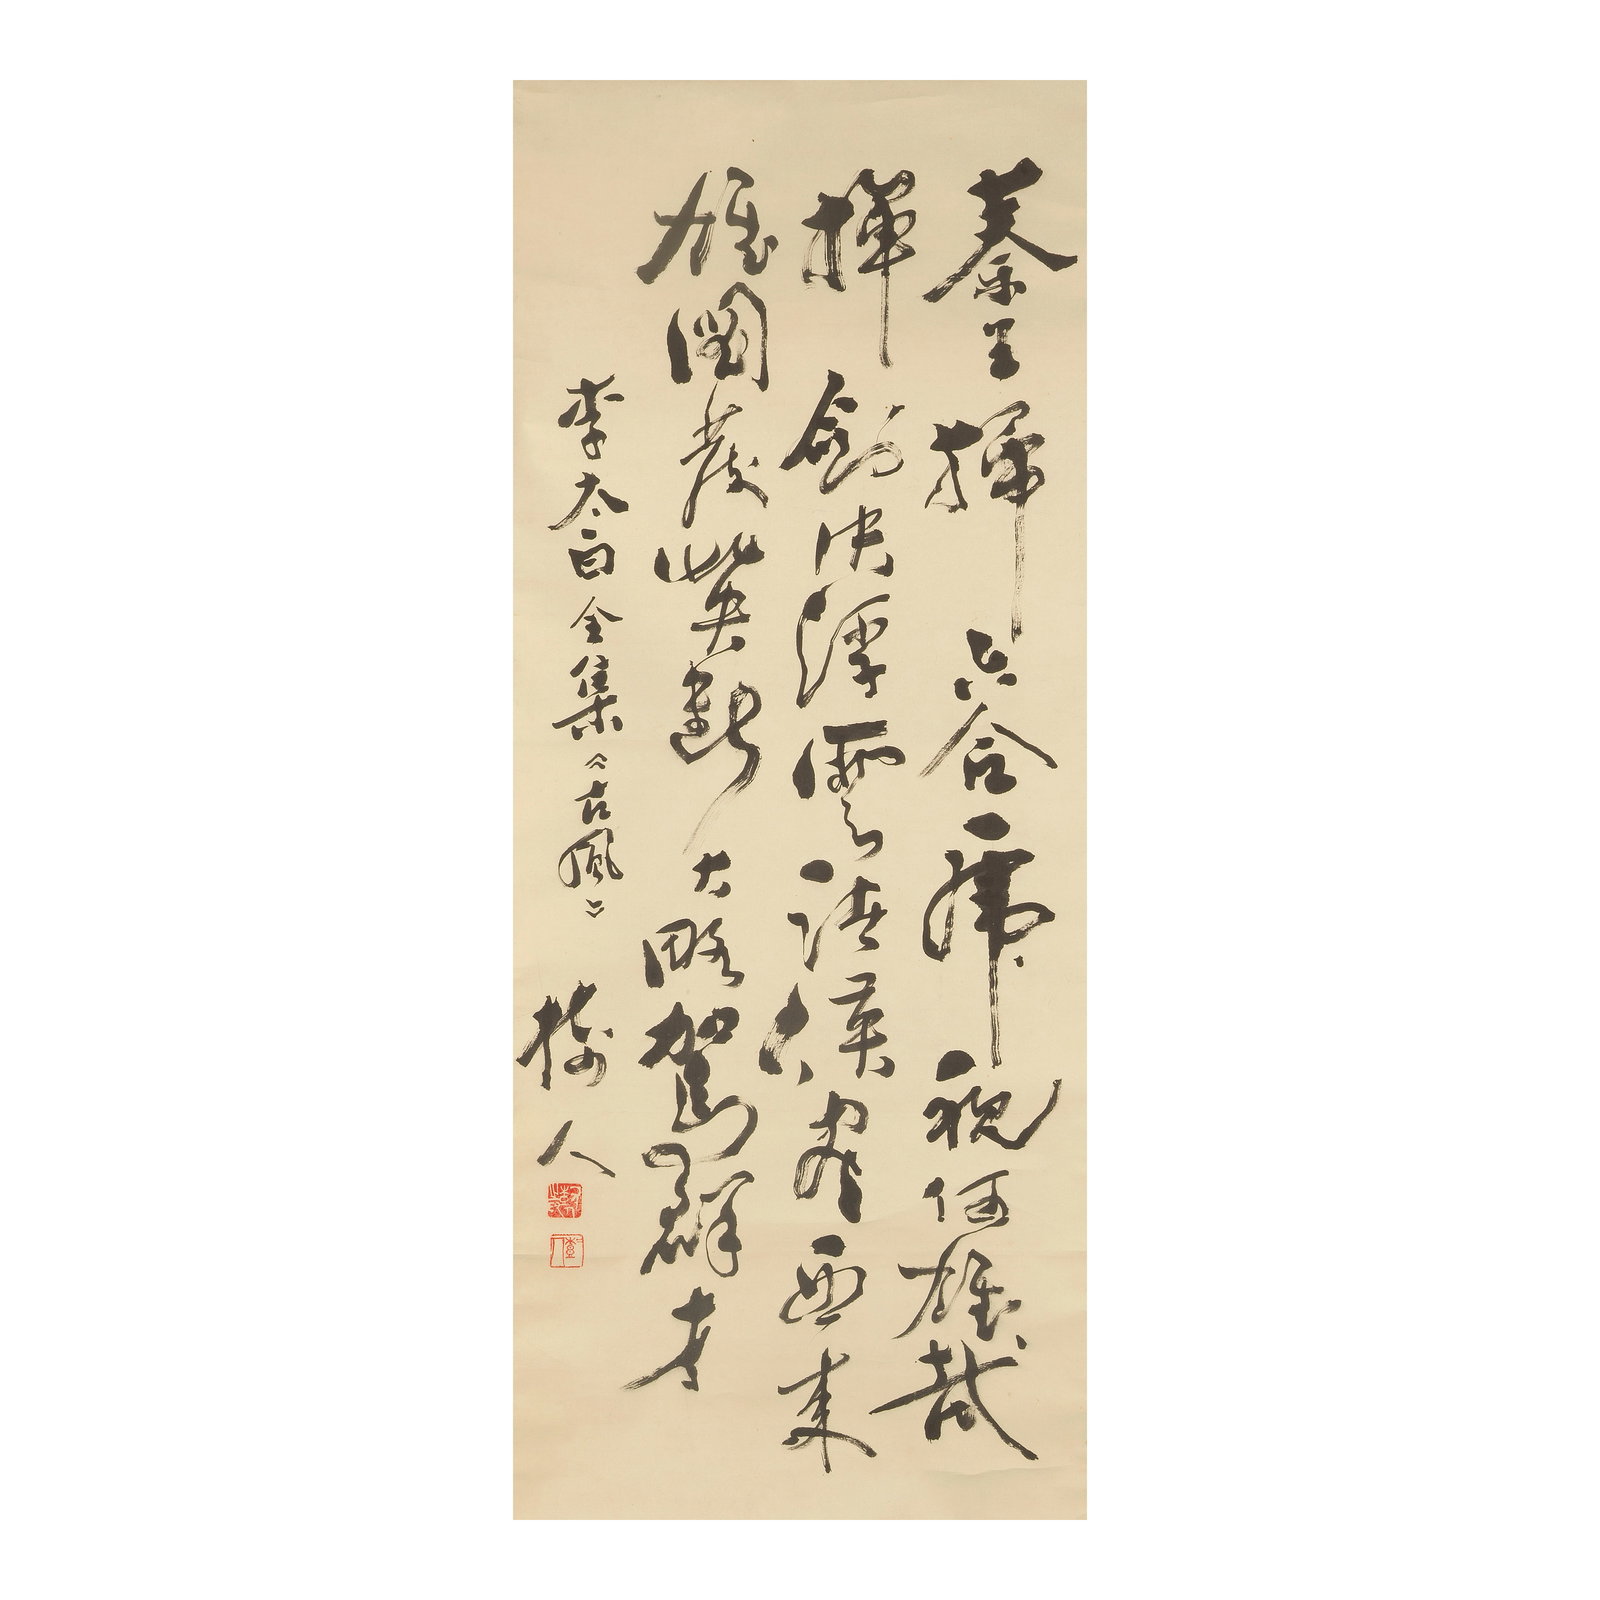 秦王掃六合虎視何雄哉
揮劍决浮雲諸侯盡西来
雄圖發英斷大略駕群才
李太白全集《古風》
人